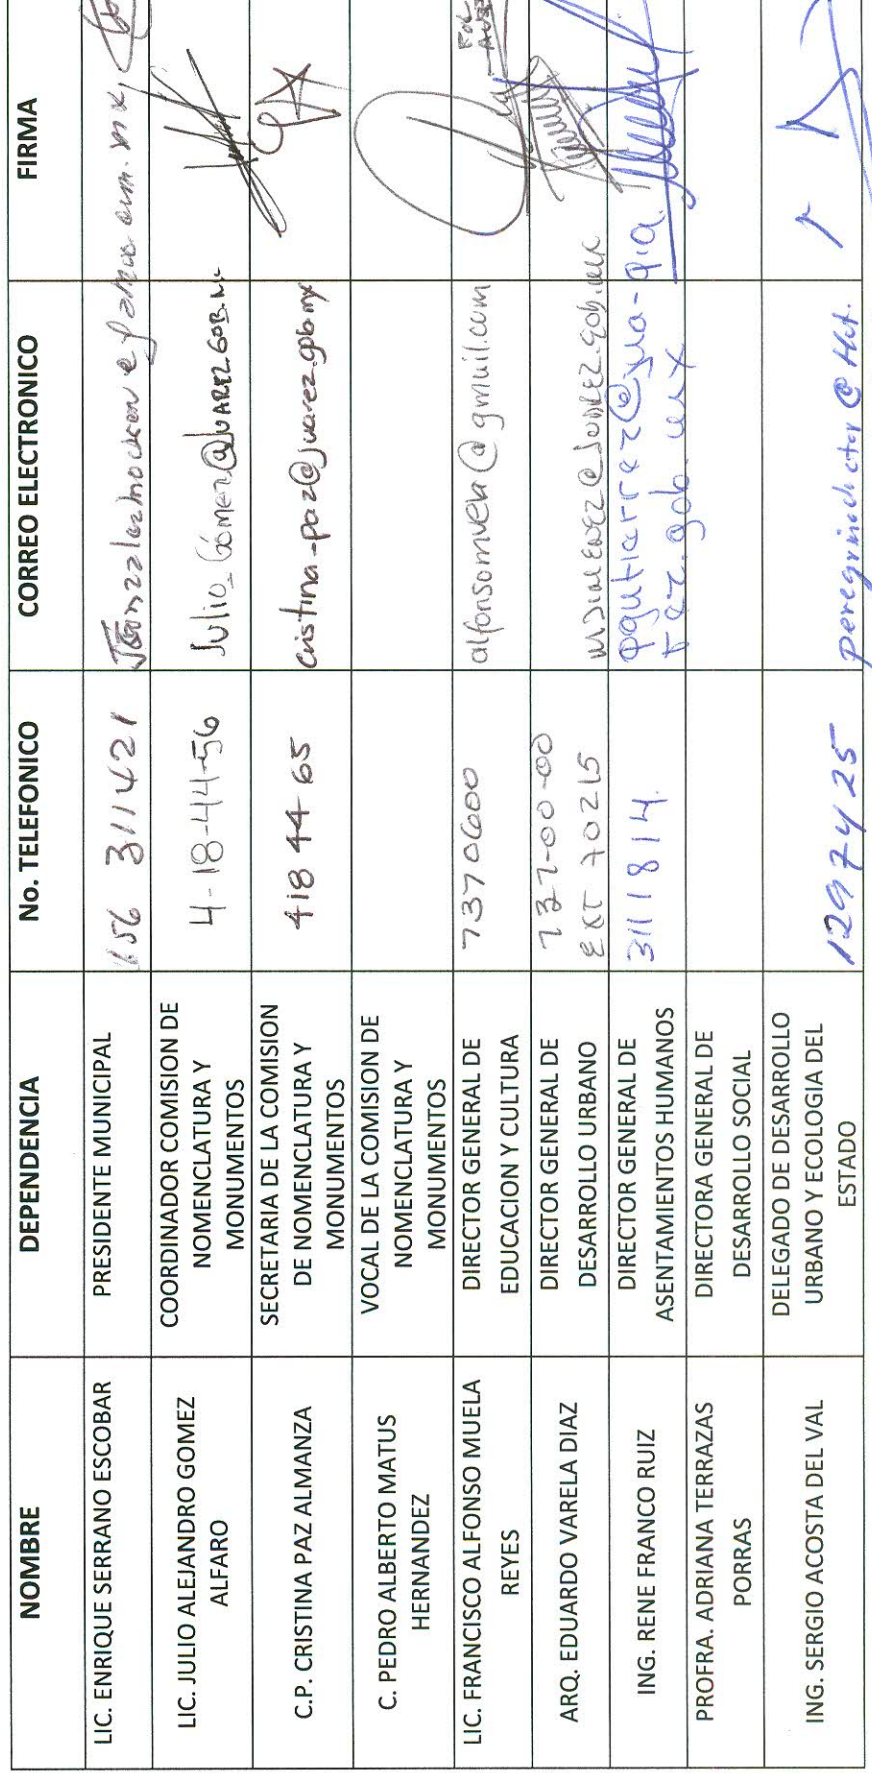 NOMBRE DEPENDENCIA No. TELEFONICO CORREO ELECTRONICO FIRMA
LIC. ENRIQUE SERRANO ESCOBAR PRESIDENTE MUNICIPAL 656 311421
LIC. JULIO ALEJANDRO GOMEZ
ALFARO
COORDINADOR COMISION DE
NOMENCLATURA Y
MONUMENTOS
4-18-44-56 Julio_Gómez@JUAREZ.GOB.MX
C.P. CRISTINA PAZ ALMANZA
SECRETARIA DE LA COMISION
DE NOMENCLATURA Y
MONUMENTOS
418 44 65 cristina-paz@juarez.gob.mx
C. PEDRO ALBERTO MATUS
HERNANDEZ
VOCAL DE LA COMISION DE
NOMENCLATURA Y
MONUMENTOS
LIC. FRANCISCO ALFONSO MUELA
REYES
DIRECTOR GENERAL DE
EDUCACION Y CULTURA
7370600 alfonsomvela@gmail.com
ARQ. EDUARDO VARELA DIAZ
DIRECTOR GENERAL DE
DESARROLLO URBANO
737-00-00
EXT 70215
ING. RENE FRANCO RUIZ
DIRECTOR GENERAL DE
ASENTAMIENTOS HUMANOS
3111814
pgutierrez@jua-
rez.gob.mx
PROFRA. ADRIANA TERRAZAS
PORRAS
DIRECTORA GENERAL DE
DESARROLLO SOCIAL
ING. SERGIO ACOSTA DEL VAL
DELEGADO DE DESARROLLO
URBANO Y ECOLOGIA DEL
ESTADO
1297425